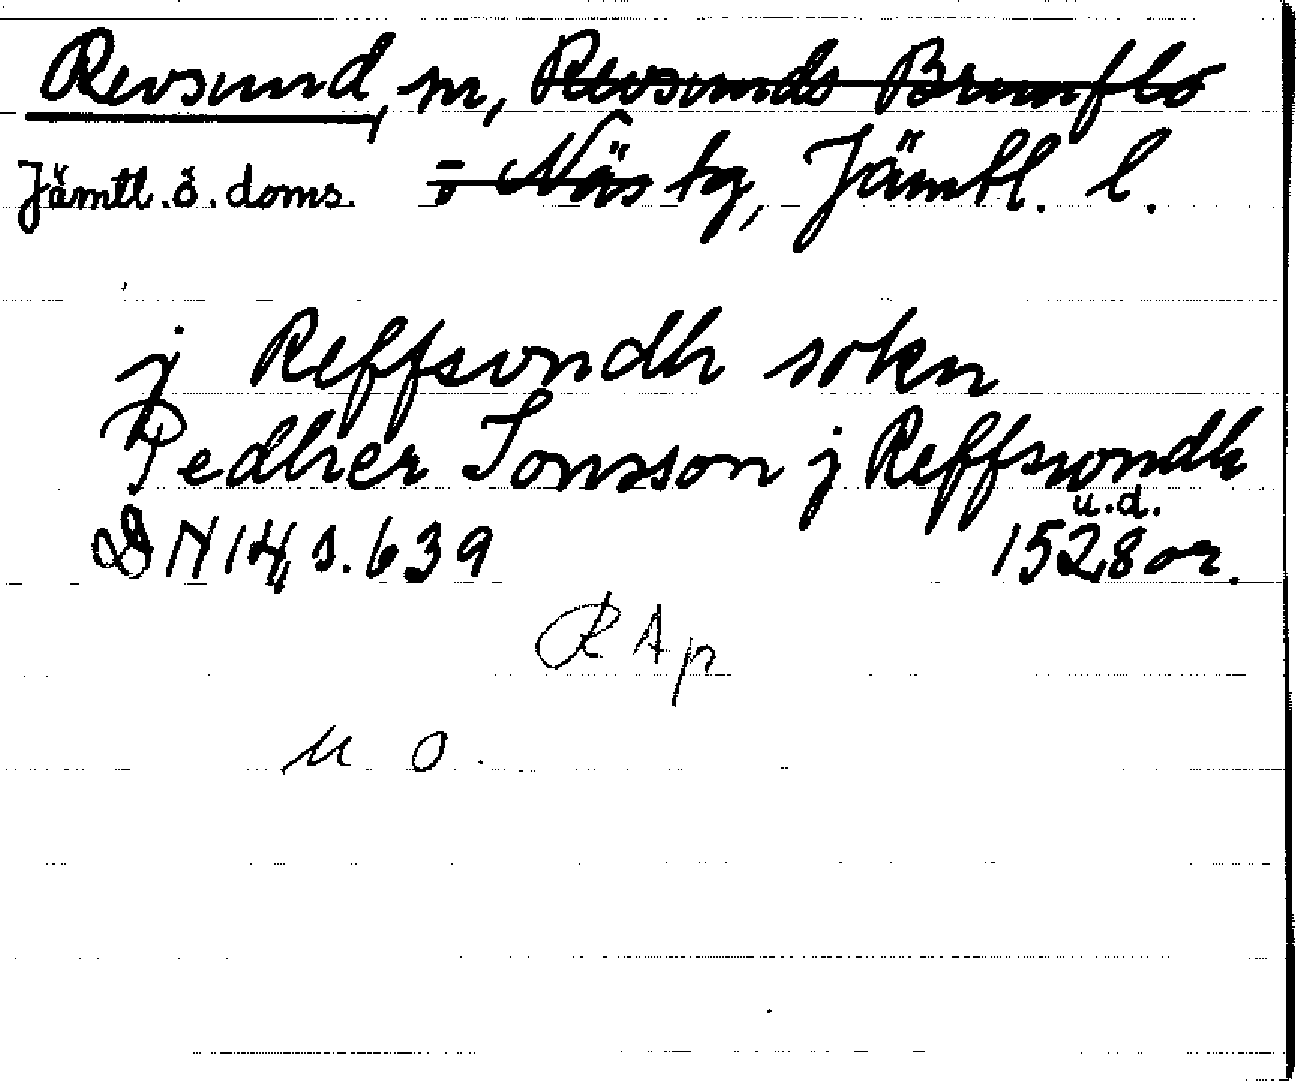 Revsund, sn, Revsunds Brunflo
Jämtl. ö. doms. o Näs tg, Jämtl. l.
j Reffsvndh sokn
Pedher Jonsson j Reffswondh
u.d.
DN 14, s. 639 1528 or.
RAp